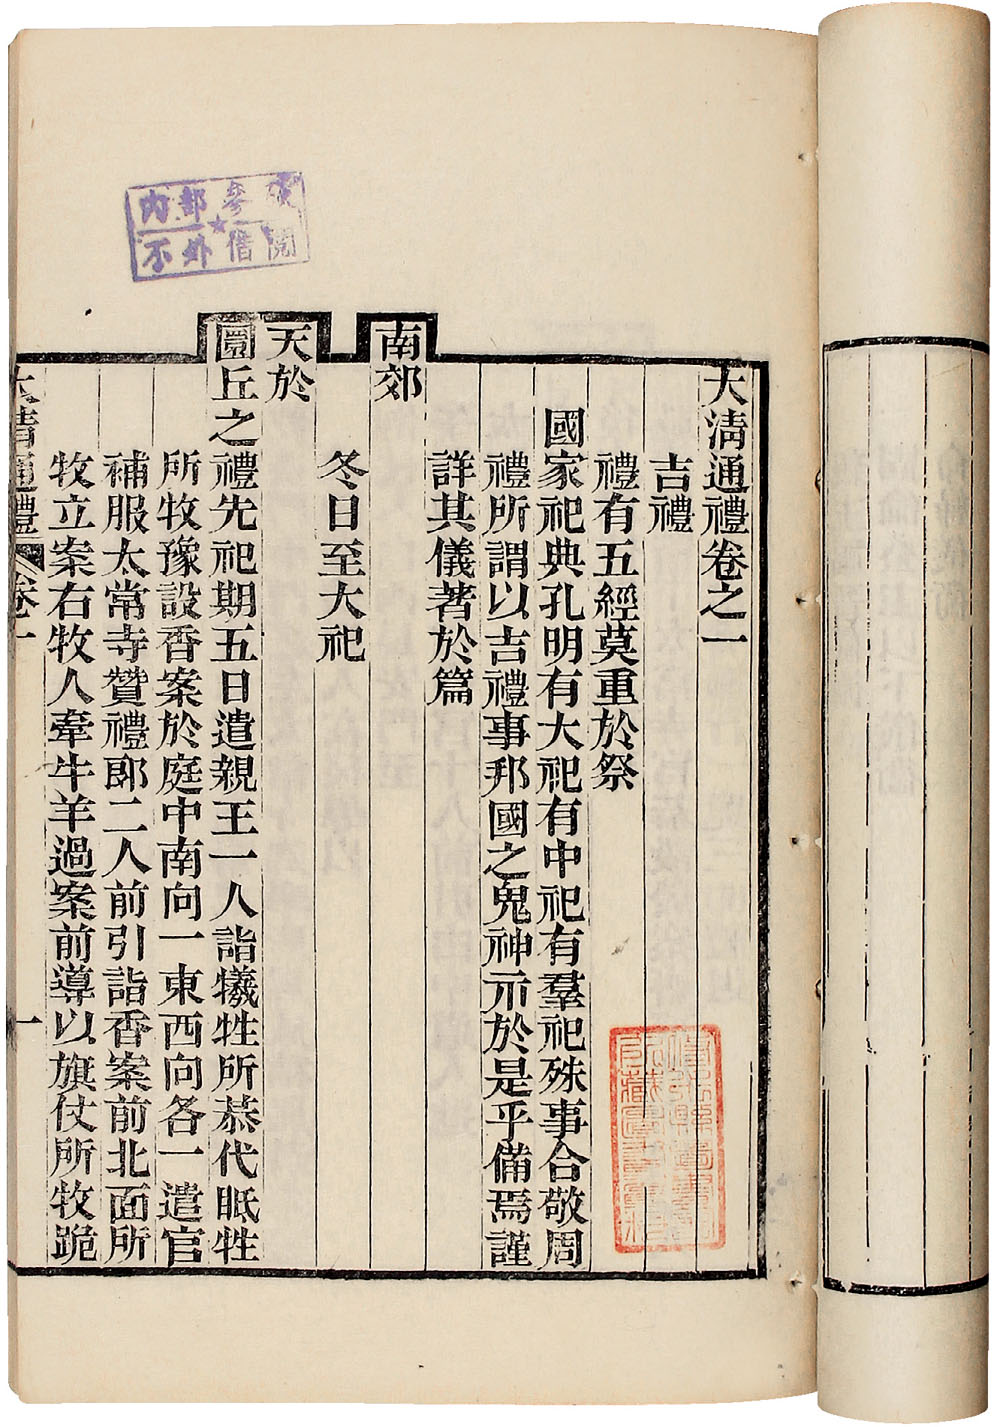 大清通禮卷之一
吉禮
禮有五經莫重於祭
國家祀典孔明有大祀有中祀有羣祀殊事合敬周
禮所謂以吉禮事邦國之鬼神示於是乎備焉謹
詳其儀著於篇
南郊
冬日至大祀
天於
圜丘之禮先祀期五日遣親王一人詣犧牲所恭代眡牲
所牧豫設香案於庭中南向一東西向各一遣官
補服太常寺贊禮郎二人前引詣香案前北面所
牧立案右牧人牽牛羊過案前導以旗仗所牧跪
大清通禮 卷一 一
内部參攷
不外借閱